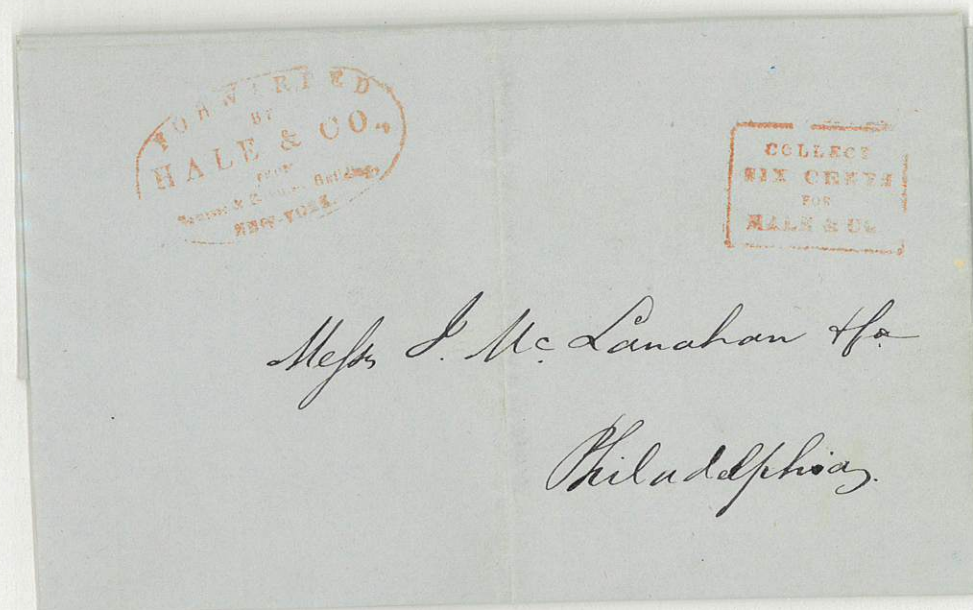 FORWARDED
BY
HALE & CO.,
FROM
Buildings,
NEW-YORK.
COLLECT
SIX CENTS
FOR
HALE & Co.
Messrs J. McLanahan & Co
Philadelphia